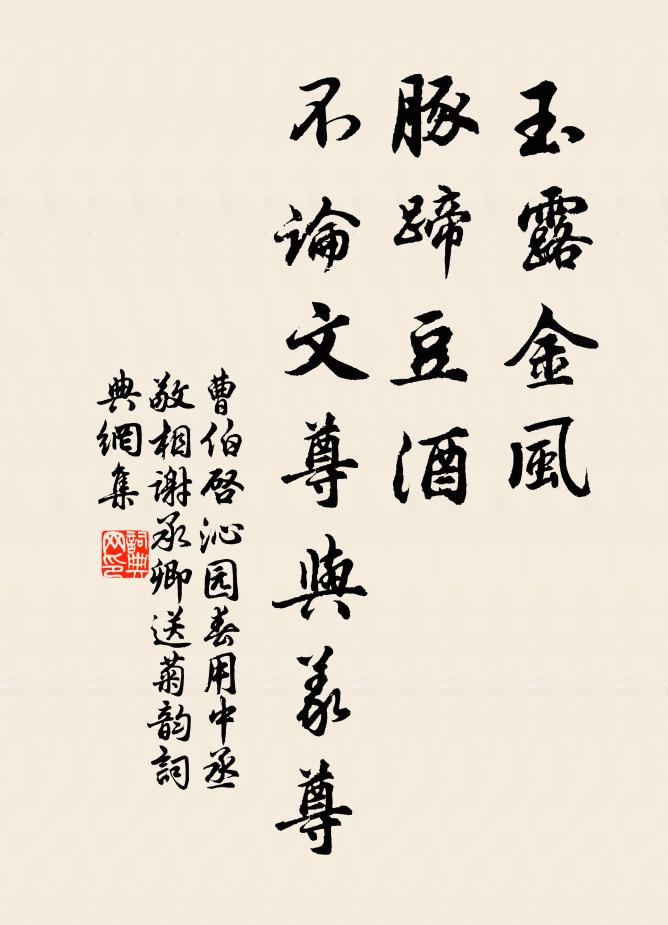 玉露金風
豚蹄豆酒
不論文尊與義尊
曹伯啓沁园春用中丞
敬相谢承卿送菊韵詞
典網集
詞典
网印